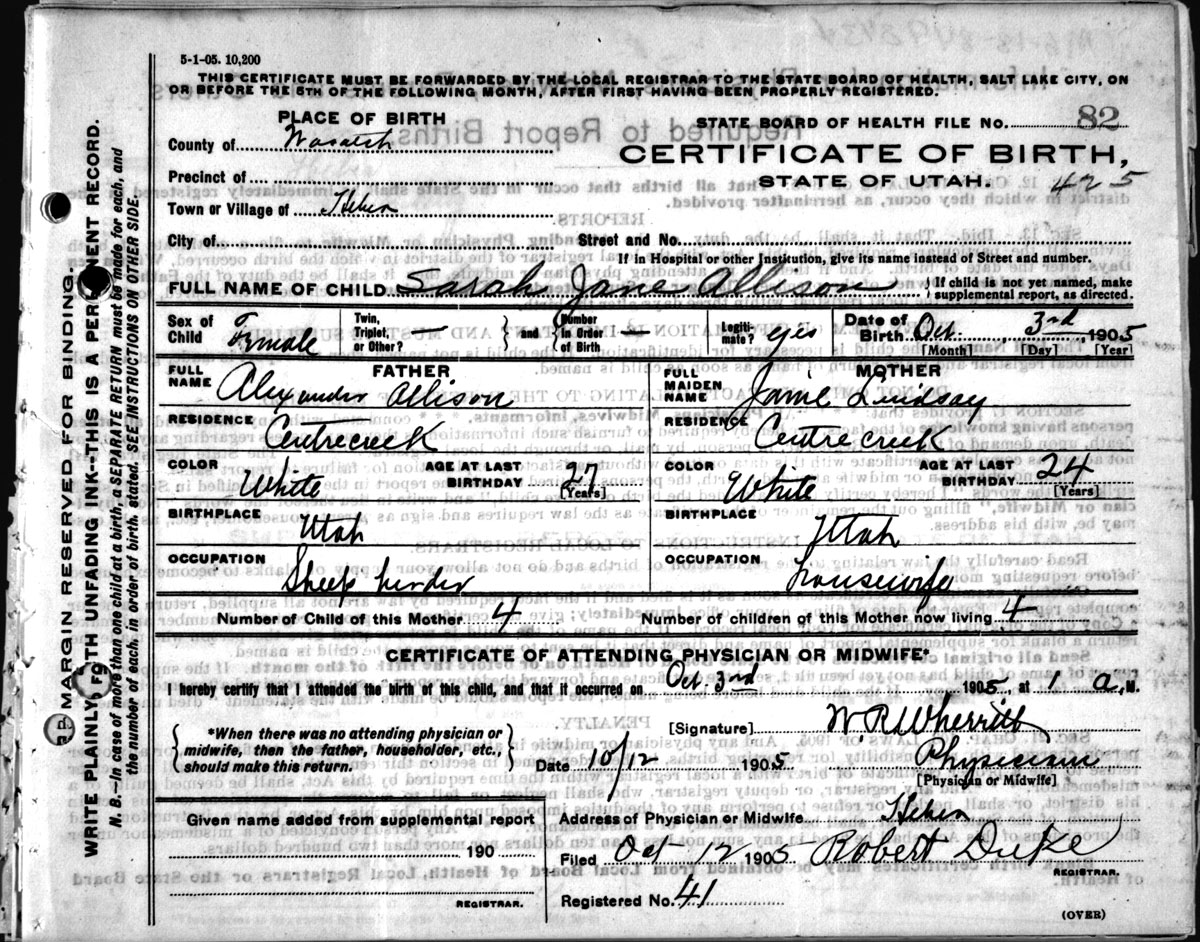 5-1-05. 10,200
THIS CERTIFICATE MUST BE FORWARDED BY THE LOCAL REGISTRAR TO THE STATE BOARD OF HEALTH, SALT LAKE CITY, ON
OR BEFORE THE 5TH OF THE FOLLOWING MONTH, AFTER FIRST HAVING BEEN PROPERLY REGISTERED.
PLACE OF BIRTH
STATE BOARD OF HEALTH FILE NO. 82
County of Wasatch
CERTIFICATE OF BIRTH,
Precinct of
STATE OF UTAH. 425
Town or Village of Heber
City of Street and No.
If in Hospital or other Institution, give its name instead of Street and number.
FULL NAME OF CHILD Sarah Jane Allison { If child is not yet named, make supplemental report, as directed.
Sex of Child Female Twin, Triplet, or Other? — } and { Number in Order of Birth — Legitimate? yes Date of Birth Oct. 3rd, 1905
[Month] [Day] [Year]
FATHER MOTHER
FULL NAME Alexander Allison FULL MAIDEN NAME Janie Lindsay
RESIDENCE Centrecreek RESIDENCE Centrecreek
COLOR White AGE AT LAST BIRTHDAY 27 [Years] COLOR White AGE AT LAST BIRTHDAY 24 [Years]
BIRTHPLACE Utah BIRTHPLACE Utah
OCCUPATION Sheep herder OCCUPATION housewife
Number of Child of this Mother 4 Number of children of this Mother now living 4
CERTIFICATE OF ATTENDING PHYSICIAN OR MIDWIFE*
I hereby certify that I attended the birth of this child, and that it occurred on Oct. 3rd 1905, at 1 a, M.
[Signature] W. R. Wherritt
{ *When there was no attending physician or midwife, then the father, householder, etc., should make this return. }
Date 10/12 1905 Physician
[Physician or Midwife]
Given name added from supplemental report
Address of Physician or Midwife Heber
190
Filed Oct 12 1905 Robert Duke
REGISTRAR.
REGISTRAR.
Registered No. 41
(OVER)
MARGIN RESERVED FOR BINDING.
WRITE PLAINLY WITH UNFADING INK--THIS IS A PERMANENT RECORD.
N. B.--In case of more than one child at a birth, a SEPARATE RETURN must be made for each, and
the number of each, in order of birth, stated. SEE INSTRUCTIONS ON OTHER SIDE.